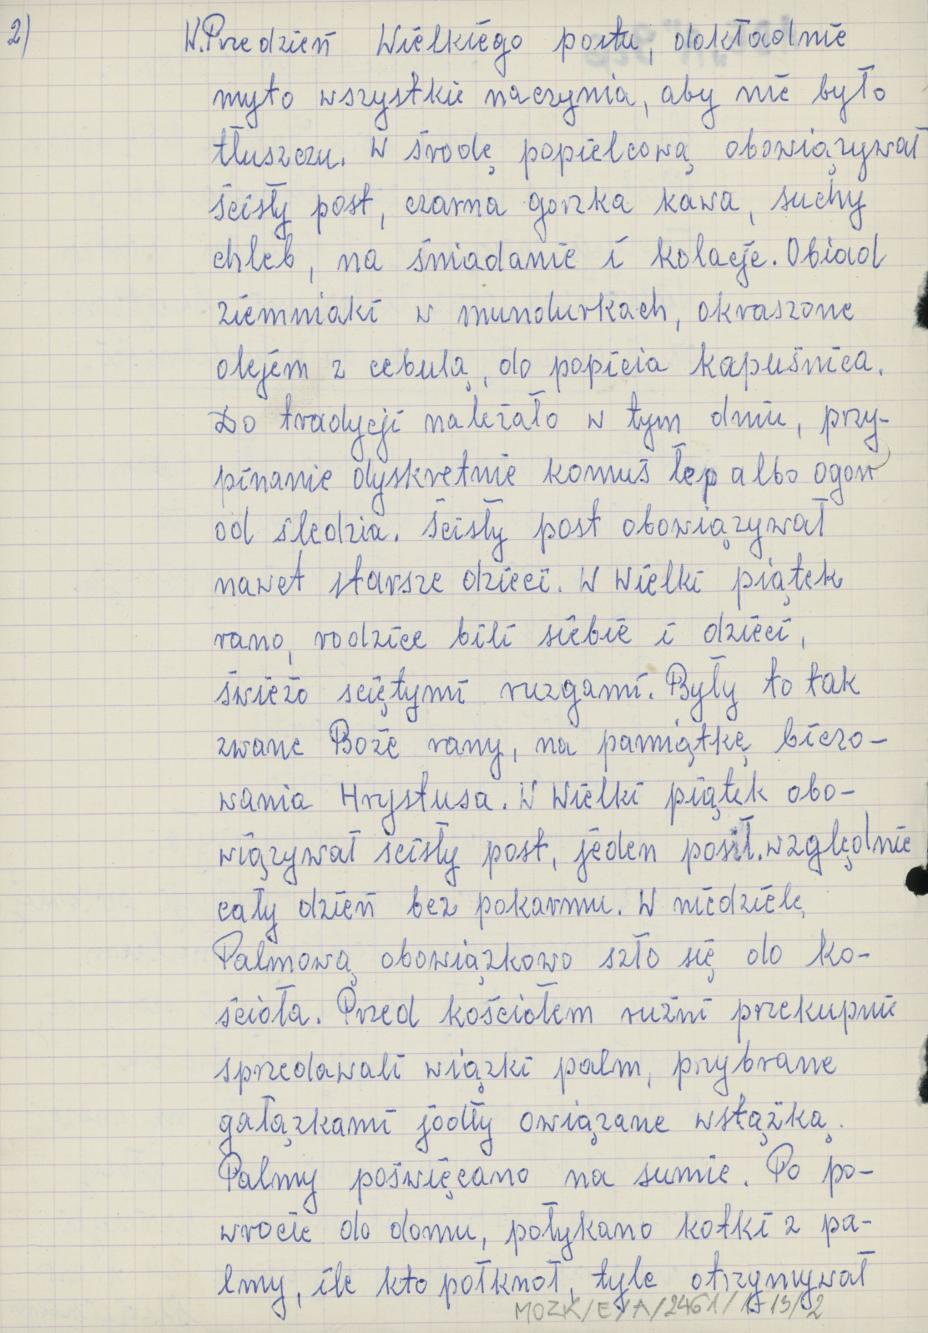 2)
W.Przedzień Wielkiego postu, dokładnie
myto wszystkie naczynia, aby nie było
tłuszczu. W środę popielcową obowiązywał
ścisły post, czarna gorzka kawa, suchy
chleb, na śniadanie i kolacje. Obiad
ziemniaki w mundurkach, okraszone
olejem z cebulą, do popicia kapuśnica.
Do tradycji należało w tym dniu, przy-
pinanie dyskretnie komuś łep albo ogon
od śledzia. Ścisły post obowiązywał
nawet starsze dzieci. W Wielki piątek
rano, rodzice bili siebie i dzieci,
świeżo sciętymi ruzgami. Były to tak
zwane Boże rany, na pamiątkę biczo-
wania Hrystusa. W Wielki piątek obo-
wiązywał scisły post, jeden posił. względnie
cały dzień bez pokarmu. W niedzielę
Palmową obowiązkowo szło się do ko-
ścioła. Przed kościołem rużni przekupnie
sprzedawali wiązki palm, przybrane
gałązkami jodły owiązane wstążką.
Palmy poświęcano na sumie. Po po-
wrocie do domu, połykano kotki z pa-
lmy, ile kto połknoł, tyle otrzymywał
MOZK/E/A/2461/1-13/2